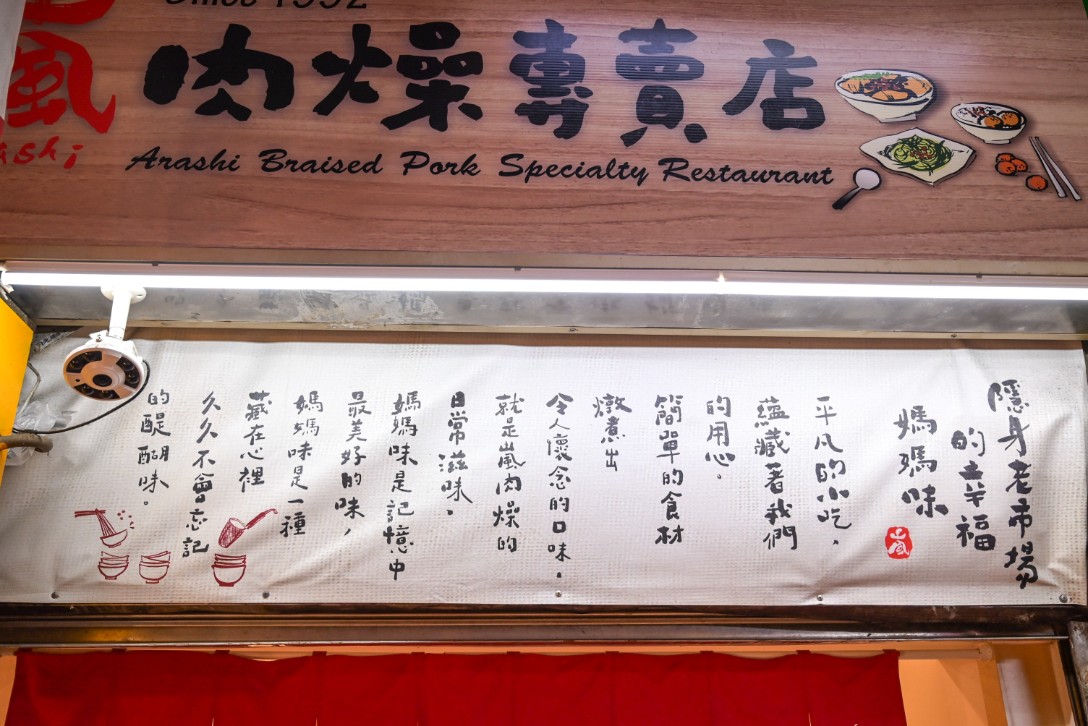 Since 1992
嵐
肉燥專賣店
Arashi Braised Pork Specialty Restaurant
隱身老市場
的幸福
媽媽味
嵐
平凡的小吃，
蘊藏著我們
的用心。
簡單的食材
燉煮出
令人懷念的口味，
就是嵐肉燥的
日常滋味，
媽媽味是記憶中
最美好的味，
媽媽味是一種
藏在心裡
久久不會忘記
的醍醐味。